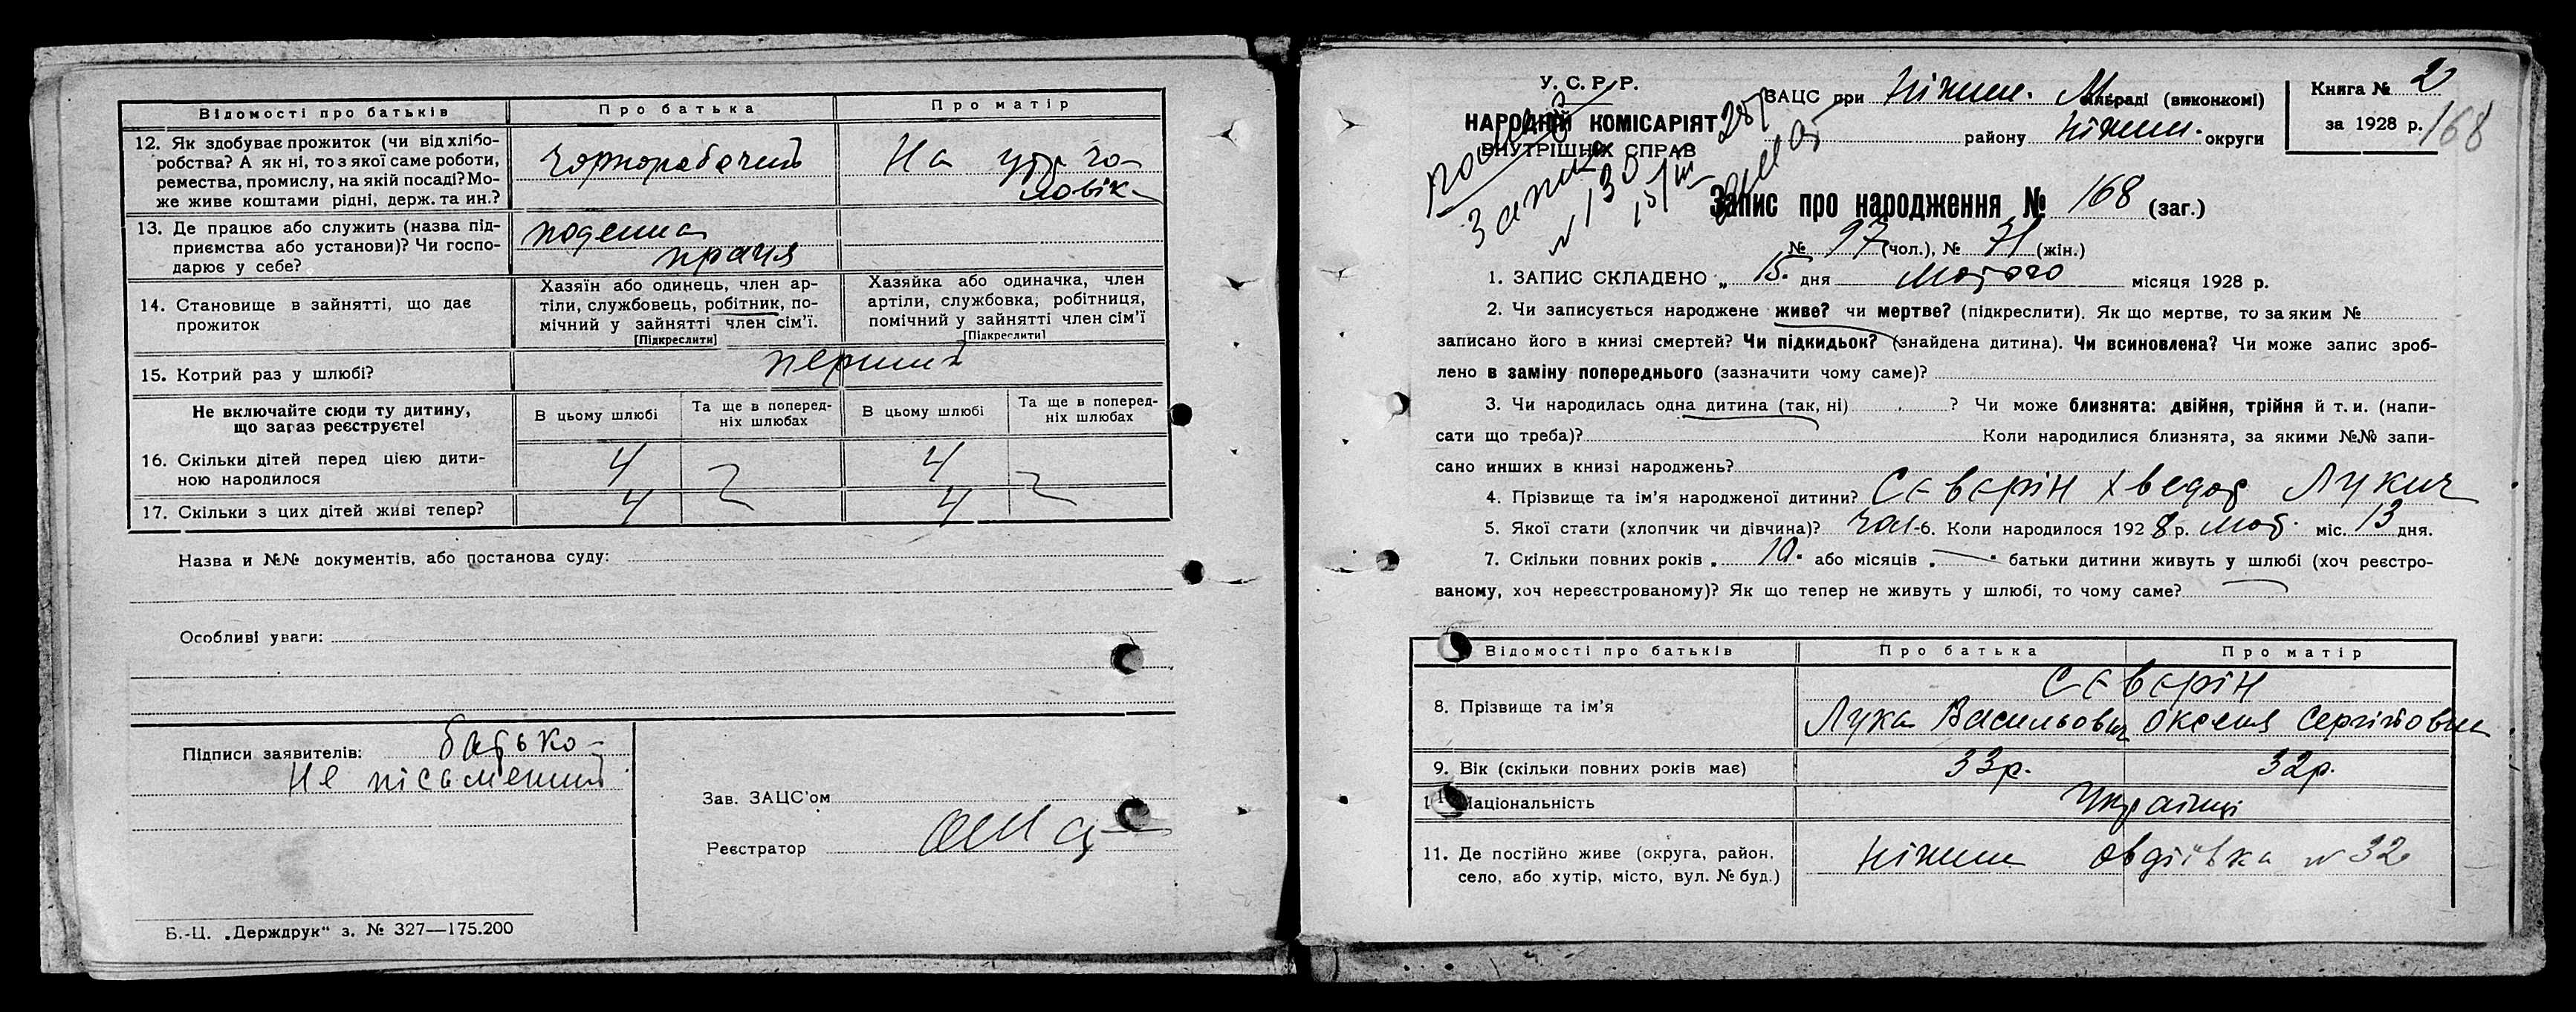 Відомості про батьків Про батька Про матір
12. Як здобуває прожиток (чи від хлібо-
робства? А як ні, то з якої саме роботи,
ремества, промислу, на якій посаді? Мо-
же живе коштами рідні, держ. та ин.?
Чорноробочий
На утр. чо-
ловік
13. Де працює або служить (назва під-
приємства або установи)? Чи госпо-
дарює у себе?
поденна
праця
14. Становище в зайнятті, що дає
прожиток
Хазяїн або одинець, член ар-
тіли, службовець, робітник, по-
мічний у зайнятті член сім'ї.
[Підкреслити]
Хазяйка або одиначка, член
артіли, службовка, робітниця,
помічний у зайнятті член сім'ї
[Підкреслити]
15. Котрий раз у шлюбі? перший
Не включайте сюди ту дитину,
що зараз реєструєте!
В цьому шлюбі
Та ще в поперед-
ніх шлюбах
В цьому шлюбі
Та ще в поперед-
ніх шлюбах
16. Скільки дітей перед цією дити-
ною народилося
4 4
17. Скільки з цих дітей живі тепер? 4 4
Назва и №№ документів, або постанова суду:
Особливі уваги:
Підписи заявителів: батько
не пісьменний
Зав. ЗАЦС'ом
Реєстратор
Б.-Ц. „Держдрук“ з. № 327—175.200
У. С. Р. Р.
НАРОДНІЙ КОМІСАРІЯТ
ВНУТРІШНІХ СПРАВ
Запис
№ 130
15/III
ЗАЦС при Ніжин. М. сільраді (виконкомі)
району Ніжин. округи
Книга № 2
за 1928 р.
168
Запис про народження № 168 (заг.)
№ 97 (чол.), № 71 (жін.)
1. ЗАПИС СКЛАДЕНО „ 15. дня Лютого місяця 1928 р.
2. Чи записується народжене живе? чи мертве? (підкреслити). Як що мертве, то за яким №
записано його в книзі смертей? Чи підкидьок? (знайдена дитина). Чи всиновлена? Чи може запис зроб-
лено в заміну попереднього (зазначити чому саме)?
3. Чи народилась одна дитина (так, ні) ? Чи може близнята: двійня, трійня й т. и. (напи-
сати що треба)? Коли народилися близнята, за якими №№ запи-
сано инших в книзі народжень?
4. Прізвище та ім'я народженої дитини? Сєвєрін Хведор Лукич
5. Якої стати (хлопчик чи дівчина)? чол. 6. Коли народилось 1928 р. лют. міс. 13 дня.
7. Скільки повних років „ 10. або місяців „ — “ батьки дитини живуть у шлюбі (хоч реєстро-
ваному, хоч нереєстрованому)? Як що тепер не живуть у шлюбі, то чому саме?
Відомості про батьків Про батька Про матір
8. Прізвище та ім'я
Сєвєрін
Лука Васильович Оксеня Сергіївна
9. Вік (скільки повних років має) 33р. 32р.
Національність Українці
11. Де постійно живе (округа, район,
село, або хутір, місто, вул. № буд.)
Ніжин Овдіївка № 32